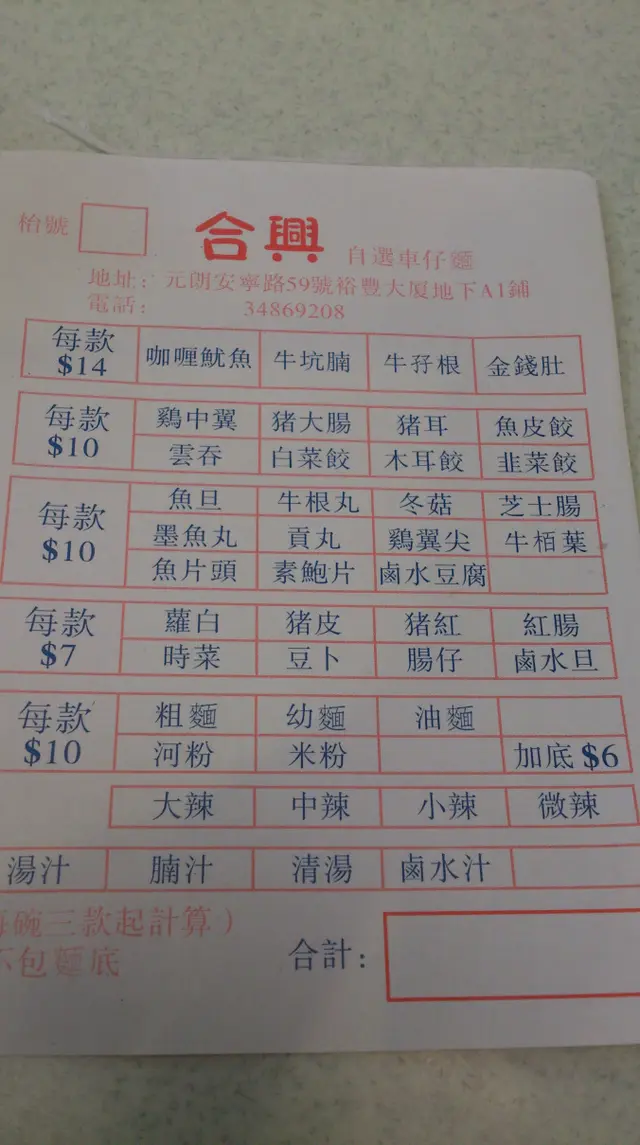 枱號
合興 自選車仔麵
地址：元朗安寧路59號裕豐大厦地下A1鋪
電話：34869208
每款 $14 咖喱魷魚 牛坑腩 牛孖根 金錢肚
每款 $10 鷄中翼 猪大腸 猪耳 魚皮餃
雲吞 白菜餃 木耳餃 韭菜餃
每款 $10 魚旦 牛根丸 冬菇 芝士腸
墨魚丸 貢丸 鷄翼尖 牛栢葉
魚片頭 素鮑片 鹵水豆腐
每款 $7 蘿白 猪皮 猪紅 紅腸
時菜 豆卜 腸仔 鹵水旦
每款 $10 粗麵 幼麵 油麵
河粉 米粉 加底 $6
大辣 中辣 小辣 微辣
湯汁 腩汁 清湯 鹵水汁
每碗三款起計算）
不包麵底
合計：